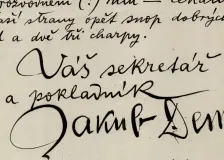 rozvodněm (.) mlu — čekám
naší strany opět snop dobrých
a dvě tři charpy.
Váš sekretář
a pokladník
Jakub Dem